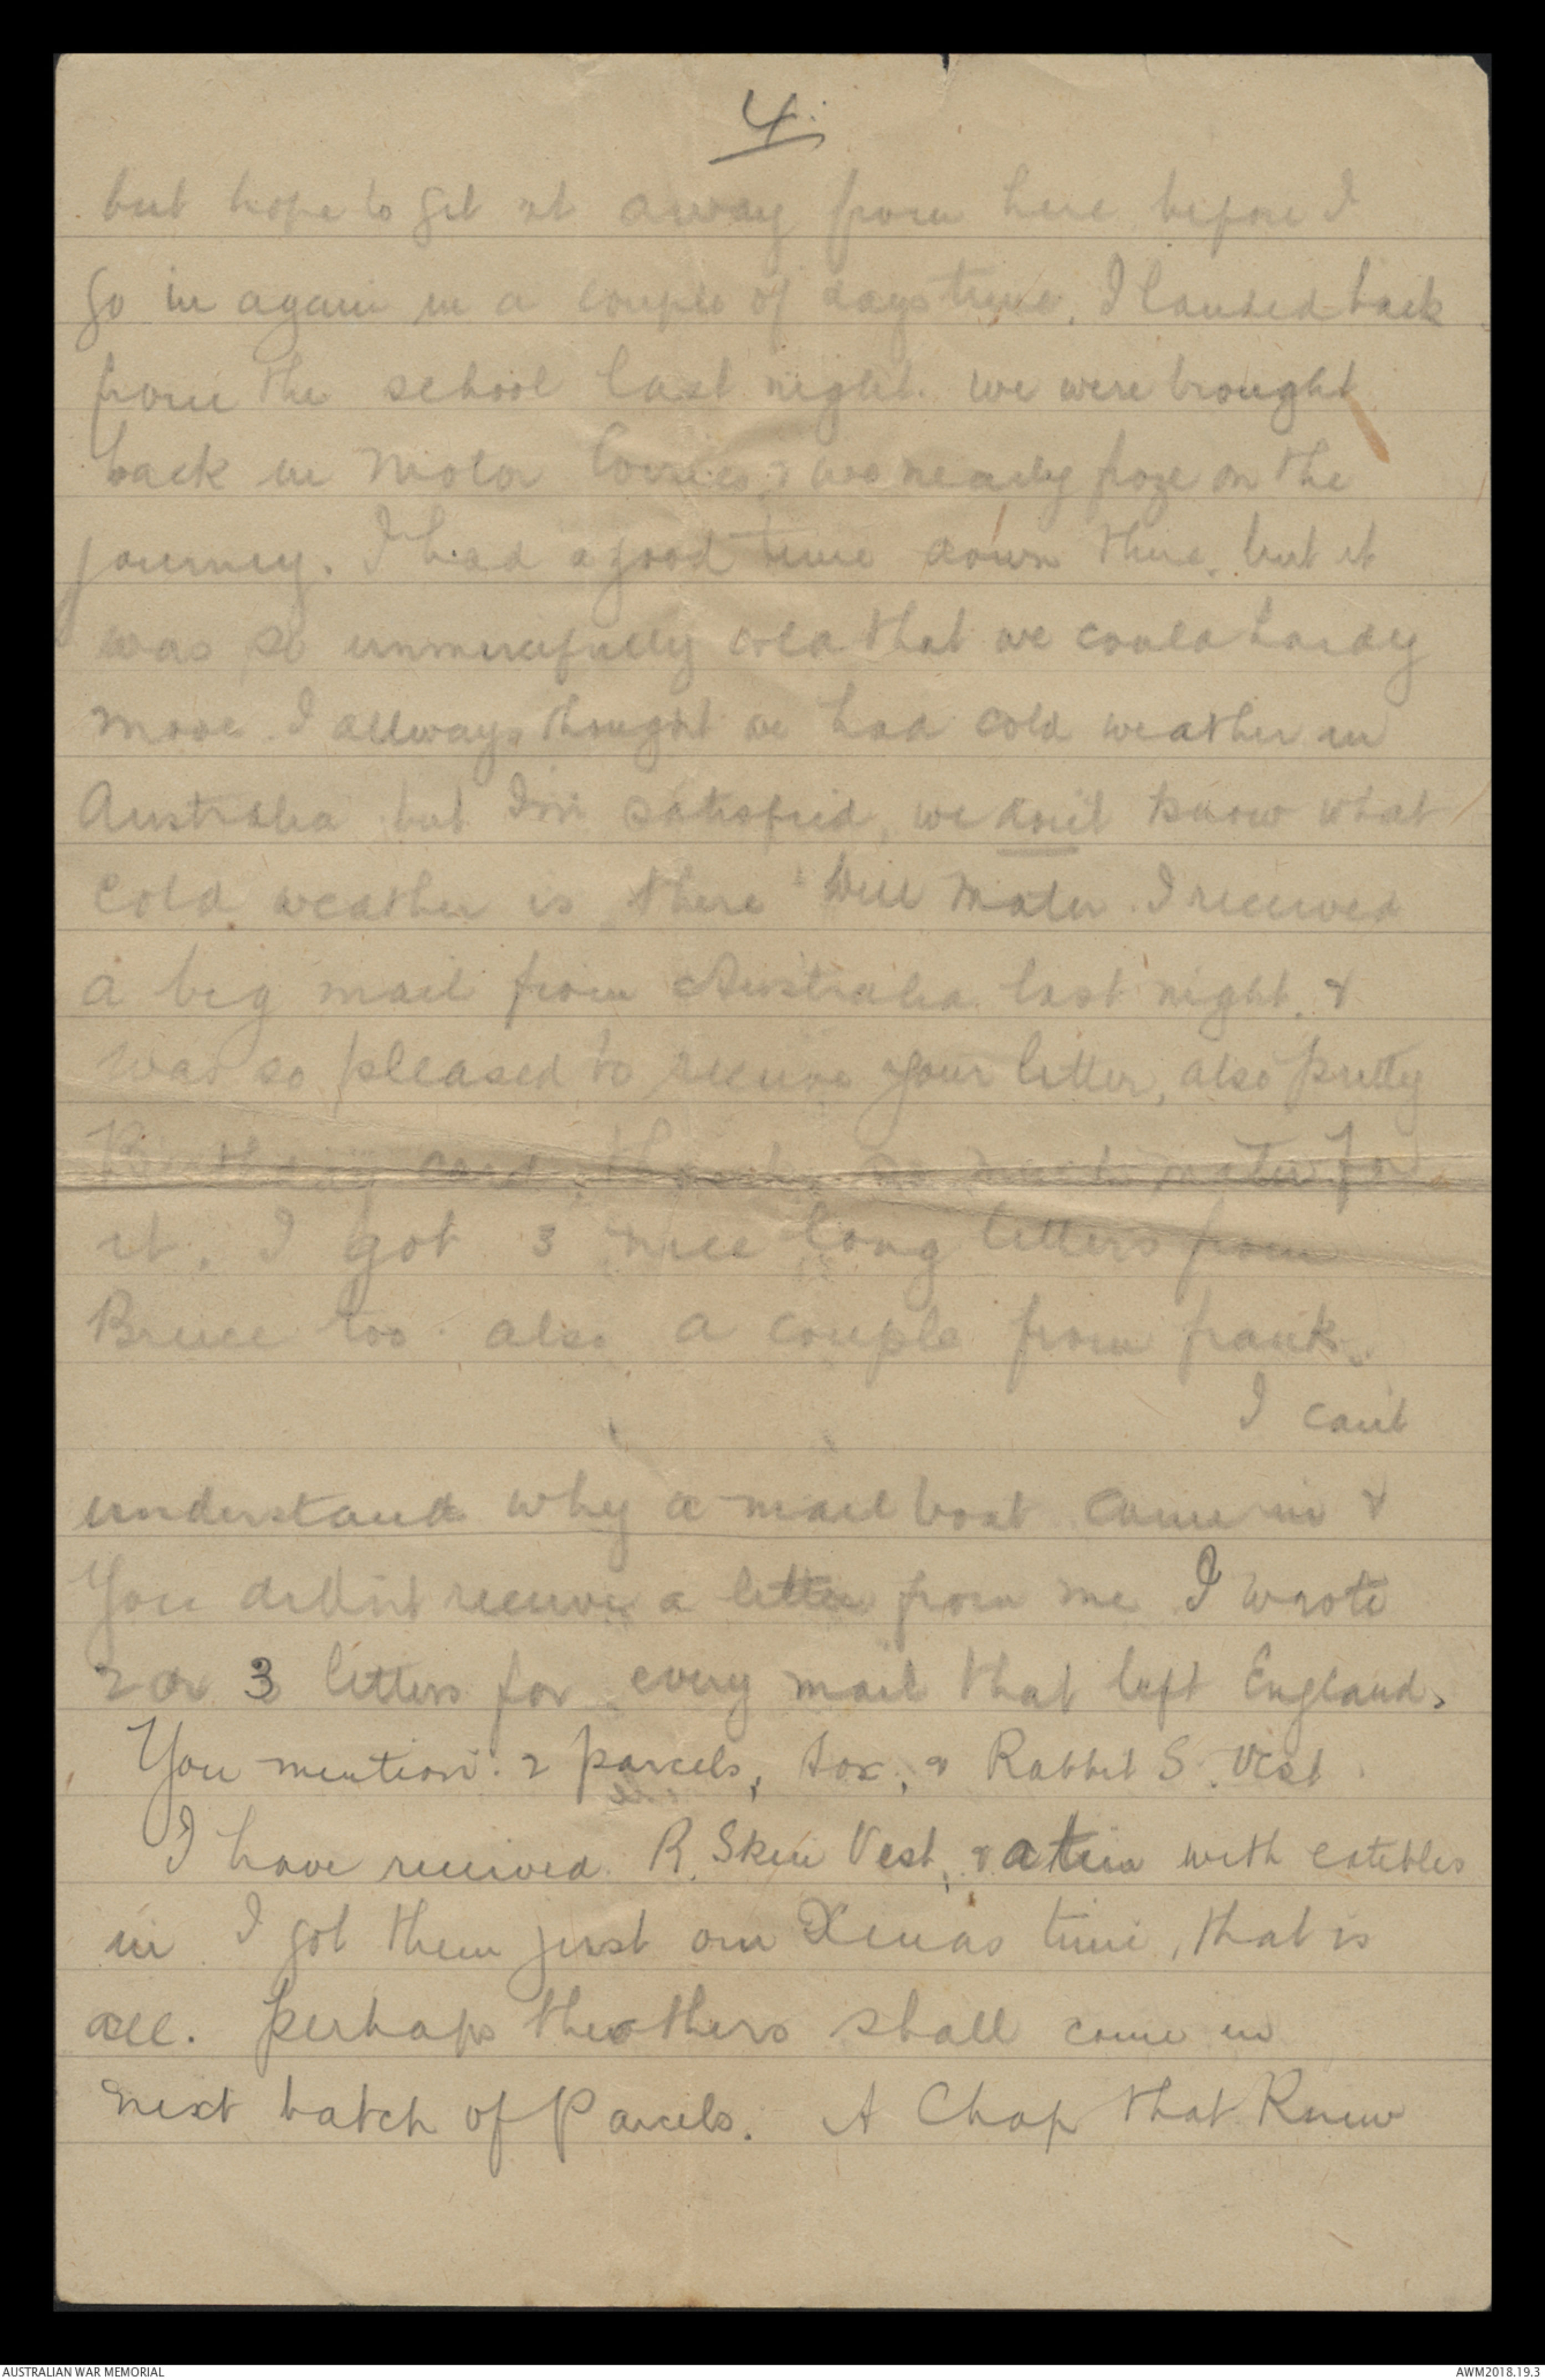 4.
but hope to get it away from here before I
go in again in a couple of days time. I landed back
from the school last night. we were brought
back in Motor lorries, & we nearly froze on the
journey. I had a good time down there, but it
was so unmercifully cold that we could hardly
move. I allways thought we had cold weather in
Australia but I'm satisfied, we don't know what
cold weather is there Well Mater I received
a big mail from Australia last night, &
was so pleased to receive your letter, also pretty
Birthday card, thanks so much mater for
it. I got 3 nice long letters from
Bruce too also a couple from frank.
I can't
understand why a mail boat came in &
You didn't receive a letter from me I wrote
2 or 3 letters for every mail that left England.
You mention 2 parcels, Sox, & Rabbit S. Vest.
I have received R. Skin Vest, & a tin with eatibles
in I got them just on Xmas time, that is
all. perhaps the others shall come in
next batch of Parcels. A Chap that Knew
AUSTRALIAN WAR MEMORIAL
AWM2018.19.3